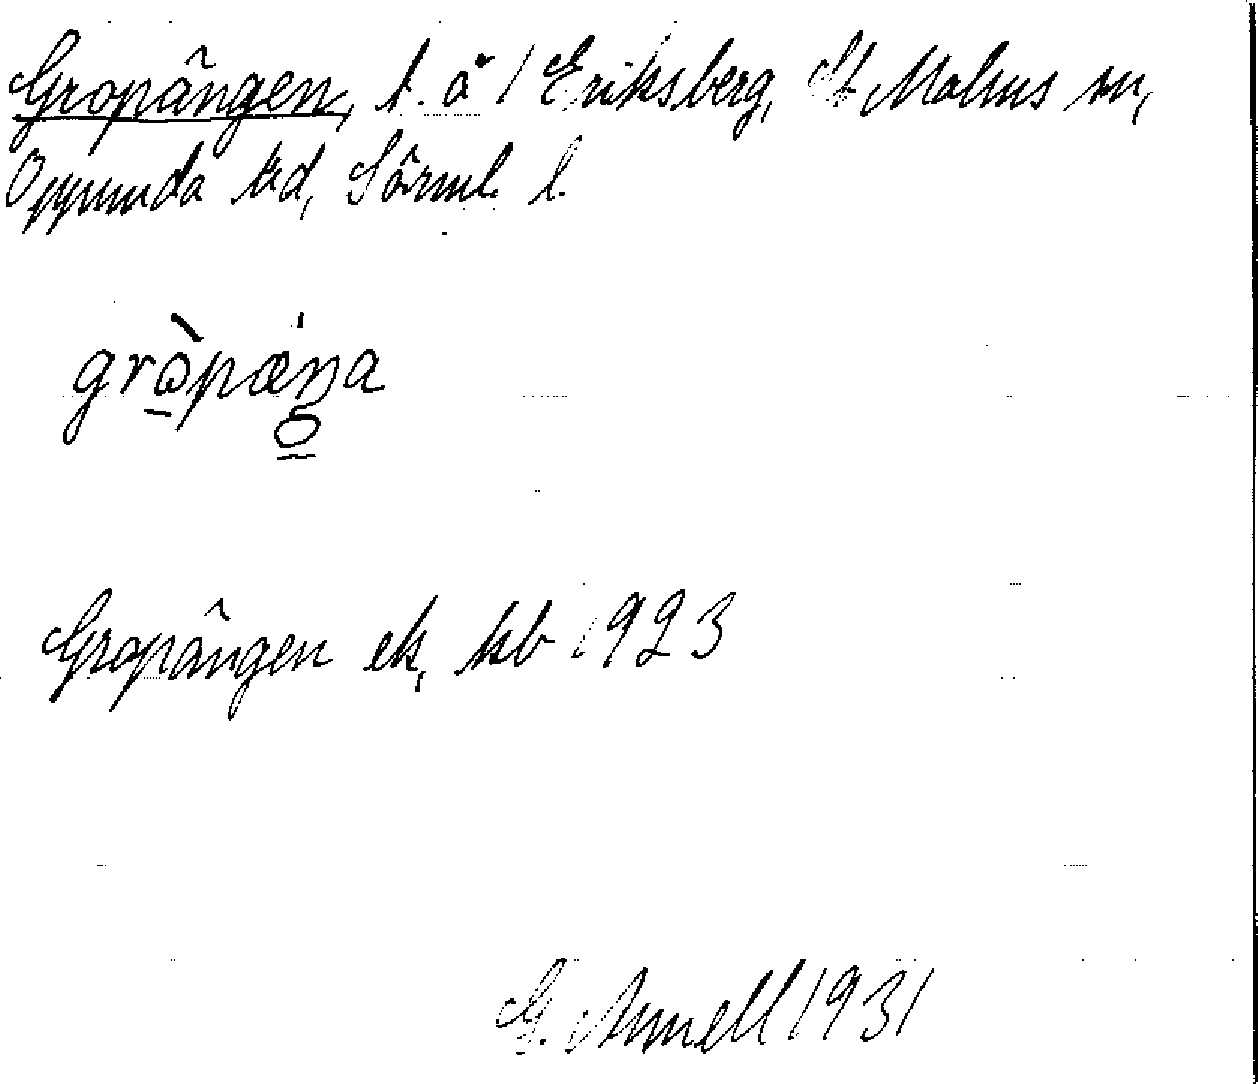 Gropängen, t. å 1 Eriksberg, St Malms sn,
Oppunda hd, Sörml. l.
gròpæŋa
Gropängen ek, kb 1923
G. Annell 1931